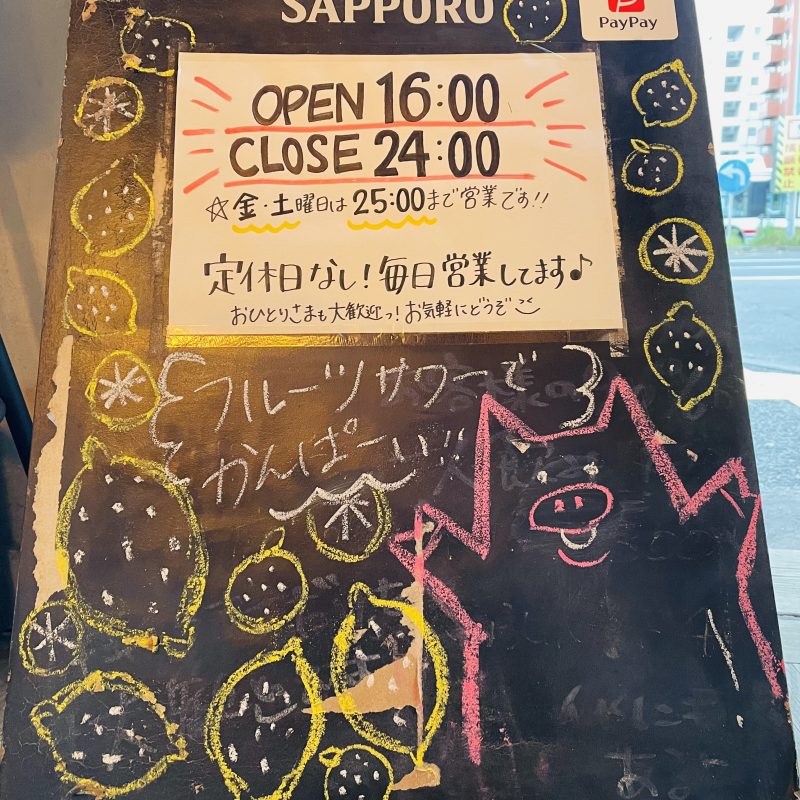 SAPPORO
PayPay
OPEN 16:00
CLOSE 24:00
☆金・土曜日は25:00まで営業です!!
定休日なし!毎日営業してます♪
おひとりさまも大歓迎っ!お気軽にどうぞ
フルーツサワーで
かんぱーい!!
横断禁止